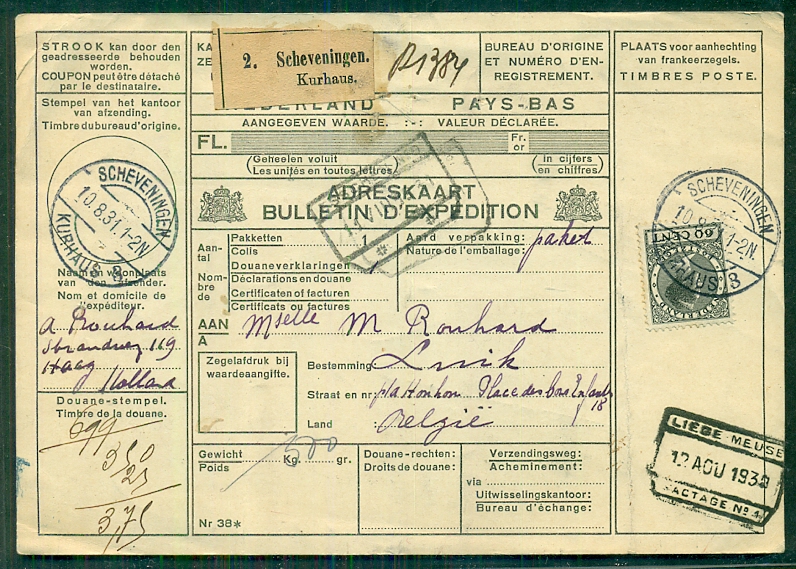 STROOK kan door den
geadresseerde behouden
worden.
COUPON peut être détaché
par le destinataire.
Stempel van het kantoor
van afzending.
Timbre du bureau d'origine.
SCHEVENINGEN
10.8.31.1-2N
KURHAUS 8
Naam en woonplaats
van den afzender.
Nom et domicile de
l'expéditeur.
A Rouhard
119
Haag
Holland
Douane-stempel.
Timbre de la douane.
699
350
25
3,75
2. Scheveningen.
Kurhaus.
R1384
BUREAU D'ORIGINE
ET NUMÉRO D'EN-
REGISTREMENT.
NEDERLAND PAYS-BAS
AANGEGEVEN WAARDE. :-: VALEUR DÉCLARÉE.
FL. Fr. or
(Geheelen voluit
Les unités en toutes lettres)
(in cijfers
en chiffres)
ADRESKAART
BULLETIN D'EXPÉDITION
Aan-
tal
Nom-
bre
de
Pakketten
Colis
Douaneverklaringen
Déclarations en douane
Certificaten of facturen
Certificats ou factures
Aard verpakking: paket
Nature de l'emballage:
AAN
A
Mselle M Rouhard
Zegelafdruk bij
waardeaangifte.
Bestemming: Luik
Straat en nr: Place des Bons Enfants
18
Land België
Gewicht
Poids
500
Kg. gr.
Douane-rechten:
Droits de douane:
Verzendingsweg:
Acheminement:
via
Uitwisselingskantoor:
Bureau d'échange:
Nr 38*
PLAATS voor aanhechting
van frankeerzegels.
TIMBRES POSTE.
SCHEVENINGEN
10.8.31.1-2N.
KURHAUS 8
60 CENT
NEDERLAND
LIÈGE MEUSE
12 AOU 193
FACTAGE No 4